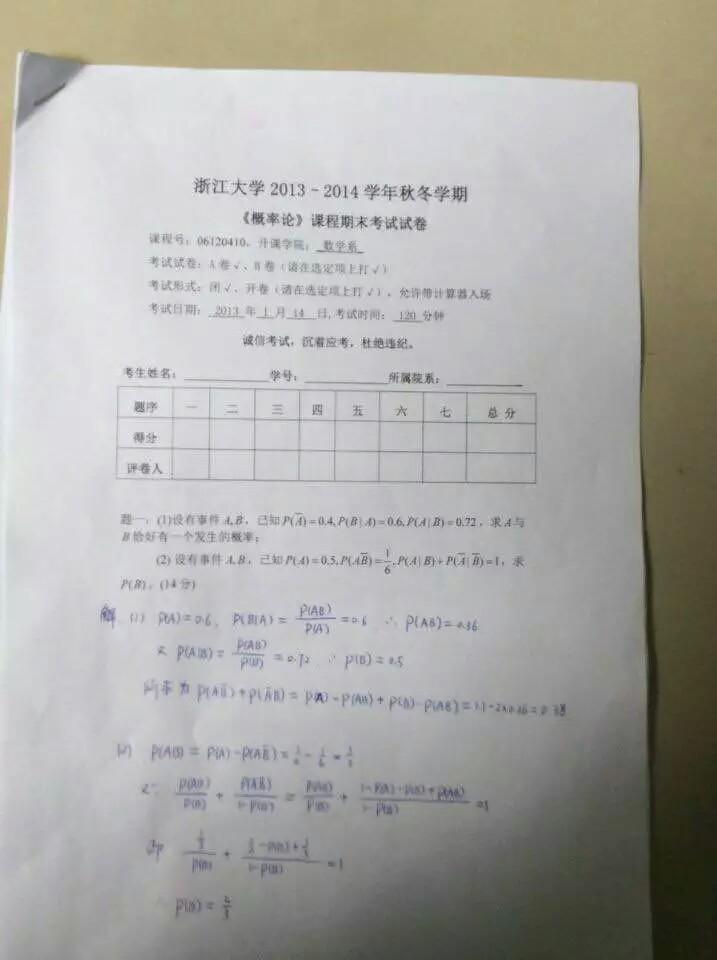 浙江大学 2013－2014 学年秋冬学期
《概率论》课程期末考试试卷
课程号：06120410，开课学院：数学系
考试试卷：A 卷 √、B 卷（请在选定项上打 √）
考试形式：闭 √、开卷（请在选定项上打 √），允许带计算器入场
考试日期：2013 年 1 月 14 日,考试时间：120 分钟
诚信考试，沉着应考，杜绝违纪。
考生姓名：学号：所属院系：
题序 一 二 三 四 五 六 七 总 分
得分
评卷人
题一：(1)设有事件 A,B，已知 P(A̅)=0.4,P(B|A)=0.6,P(A|B)=0.72，求 A 与
B 恰好有一个发生的概率；
(2) 设有事件 A,B，已知 P(A)=0.5,P(AB̅)=1/6,P(A|B)+P(A̅|B̅)=1，求
P(B)。(14 分)
解 (1) P(A)=0.6, P(B|A)=P(AB)/P(A)=0.6 ∴ P(AB)=0.36
又 P(A|B)=P(AB)/P(B)=0.72 ∴ P(B)=0.5
所求为 P(AB̅)+P(A̅B)=P(A)-P(AB)+P(B)-P(AB)=1.1-2×0.36=0.38
(2) P(AB)=P(A)-P(AB̅)=1/2-1/6=1/3
又∵ P(AB)/P(B)+P(A̅B̅)/(1-P(B))=P(AB)/P(B)+(1-P(A)-P(B)+P(AB))/(1-P(B))=1
即 (1/3)/P(B)+(1/2-P(B)+1/3)/(1-P(B))=1
∴ P(B)=2/3